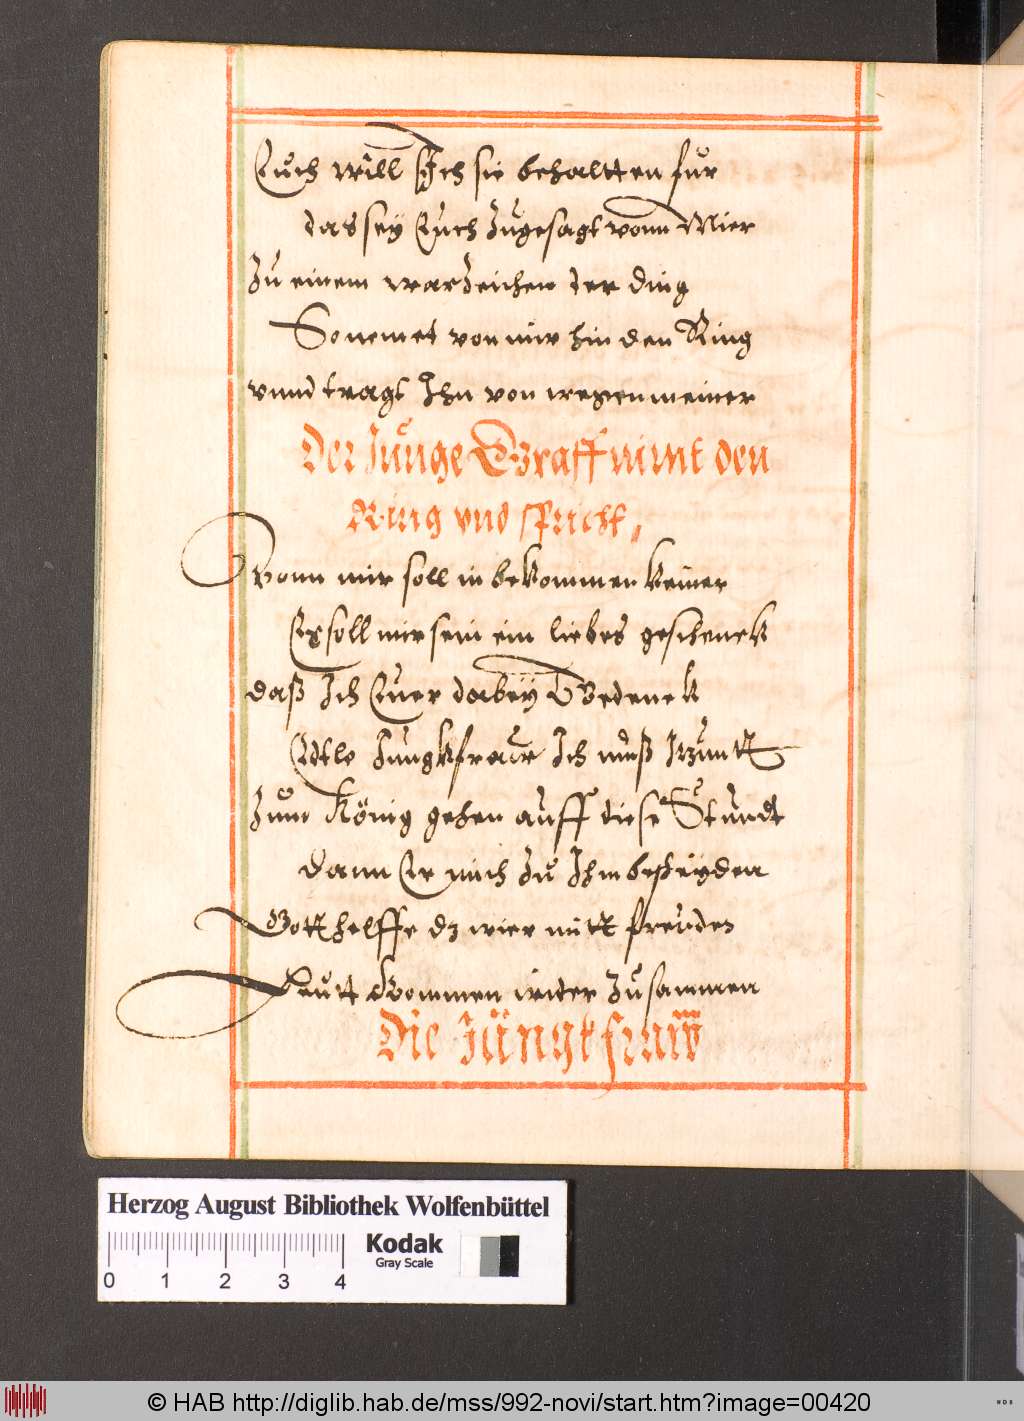 Euch will Ich sie behaltten fur
das sey Euch Zugesagt vonn Mier
Zu einem warZeichen der ding
So nemet von mir hin den Ring
vnnd tragt Ihn von wegen meiner
Der Junge Graff nimt den
Ring vnd spricht,
Vonn mir soll in bekommen keiner
Er soll mir sein ein liebes geschenck
daß Ich Euer dabeÿ Gedenck
Edle Jungkfrauw Ich muß Itzuntt
Zum König gehen auff diese Stundt
dann Er mich Zu Ihm bescheÿden
Gott helffe dz wier mitt freuden
Heutt kommen wider Zusammen
Die Jüngkfrauw
Herzog August Bibliothek Wolfenbüttel
0 1 2 3 4
Kodak
Gray Scale
© HAB http://diglib.hab.de/mss/992-novi/start.htm?image=00420